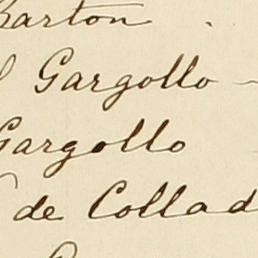 Barton .
Gargollo -
Gargollo
de Collad